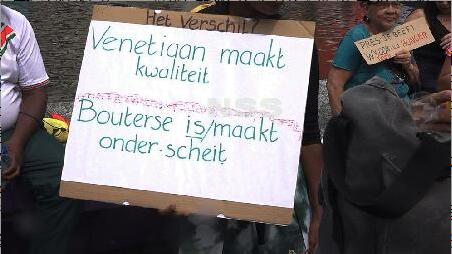 Het Verschil?
Venetiaan maakt
kwaliteit
NSS
Bouterse is/maakt
onder-scheit
PRES JE BEEFT
HONGER